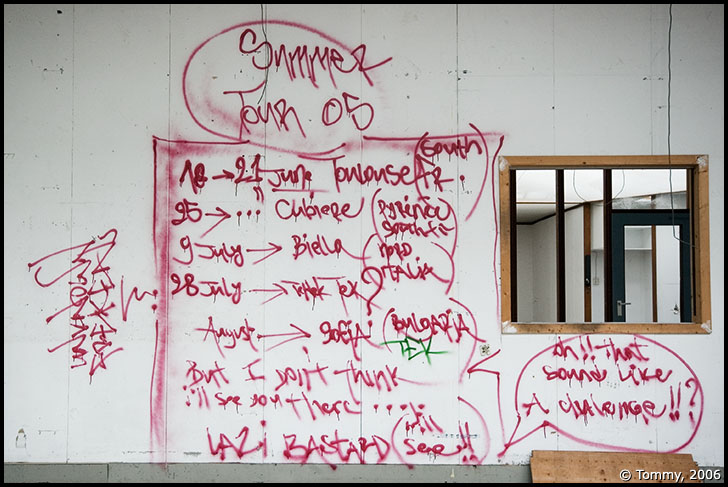 Summer
Tour 05
18 → 21 June Toulouse FR. (South)
25 → ... Cubiere (Pyrénée South Fr)
9 July → Biella (Nord Italia)
28 July → Tek ?
August → Sofia (Bulgaria
TEK)
But I Don't think
i'll see you there ....
LAZi BASTARD (i'll see!!)
Ah!! that
sound like
A challenge!!?
© Tommy, 2006